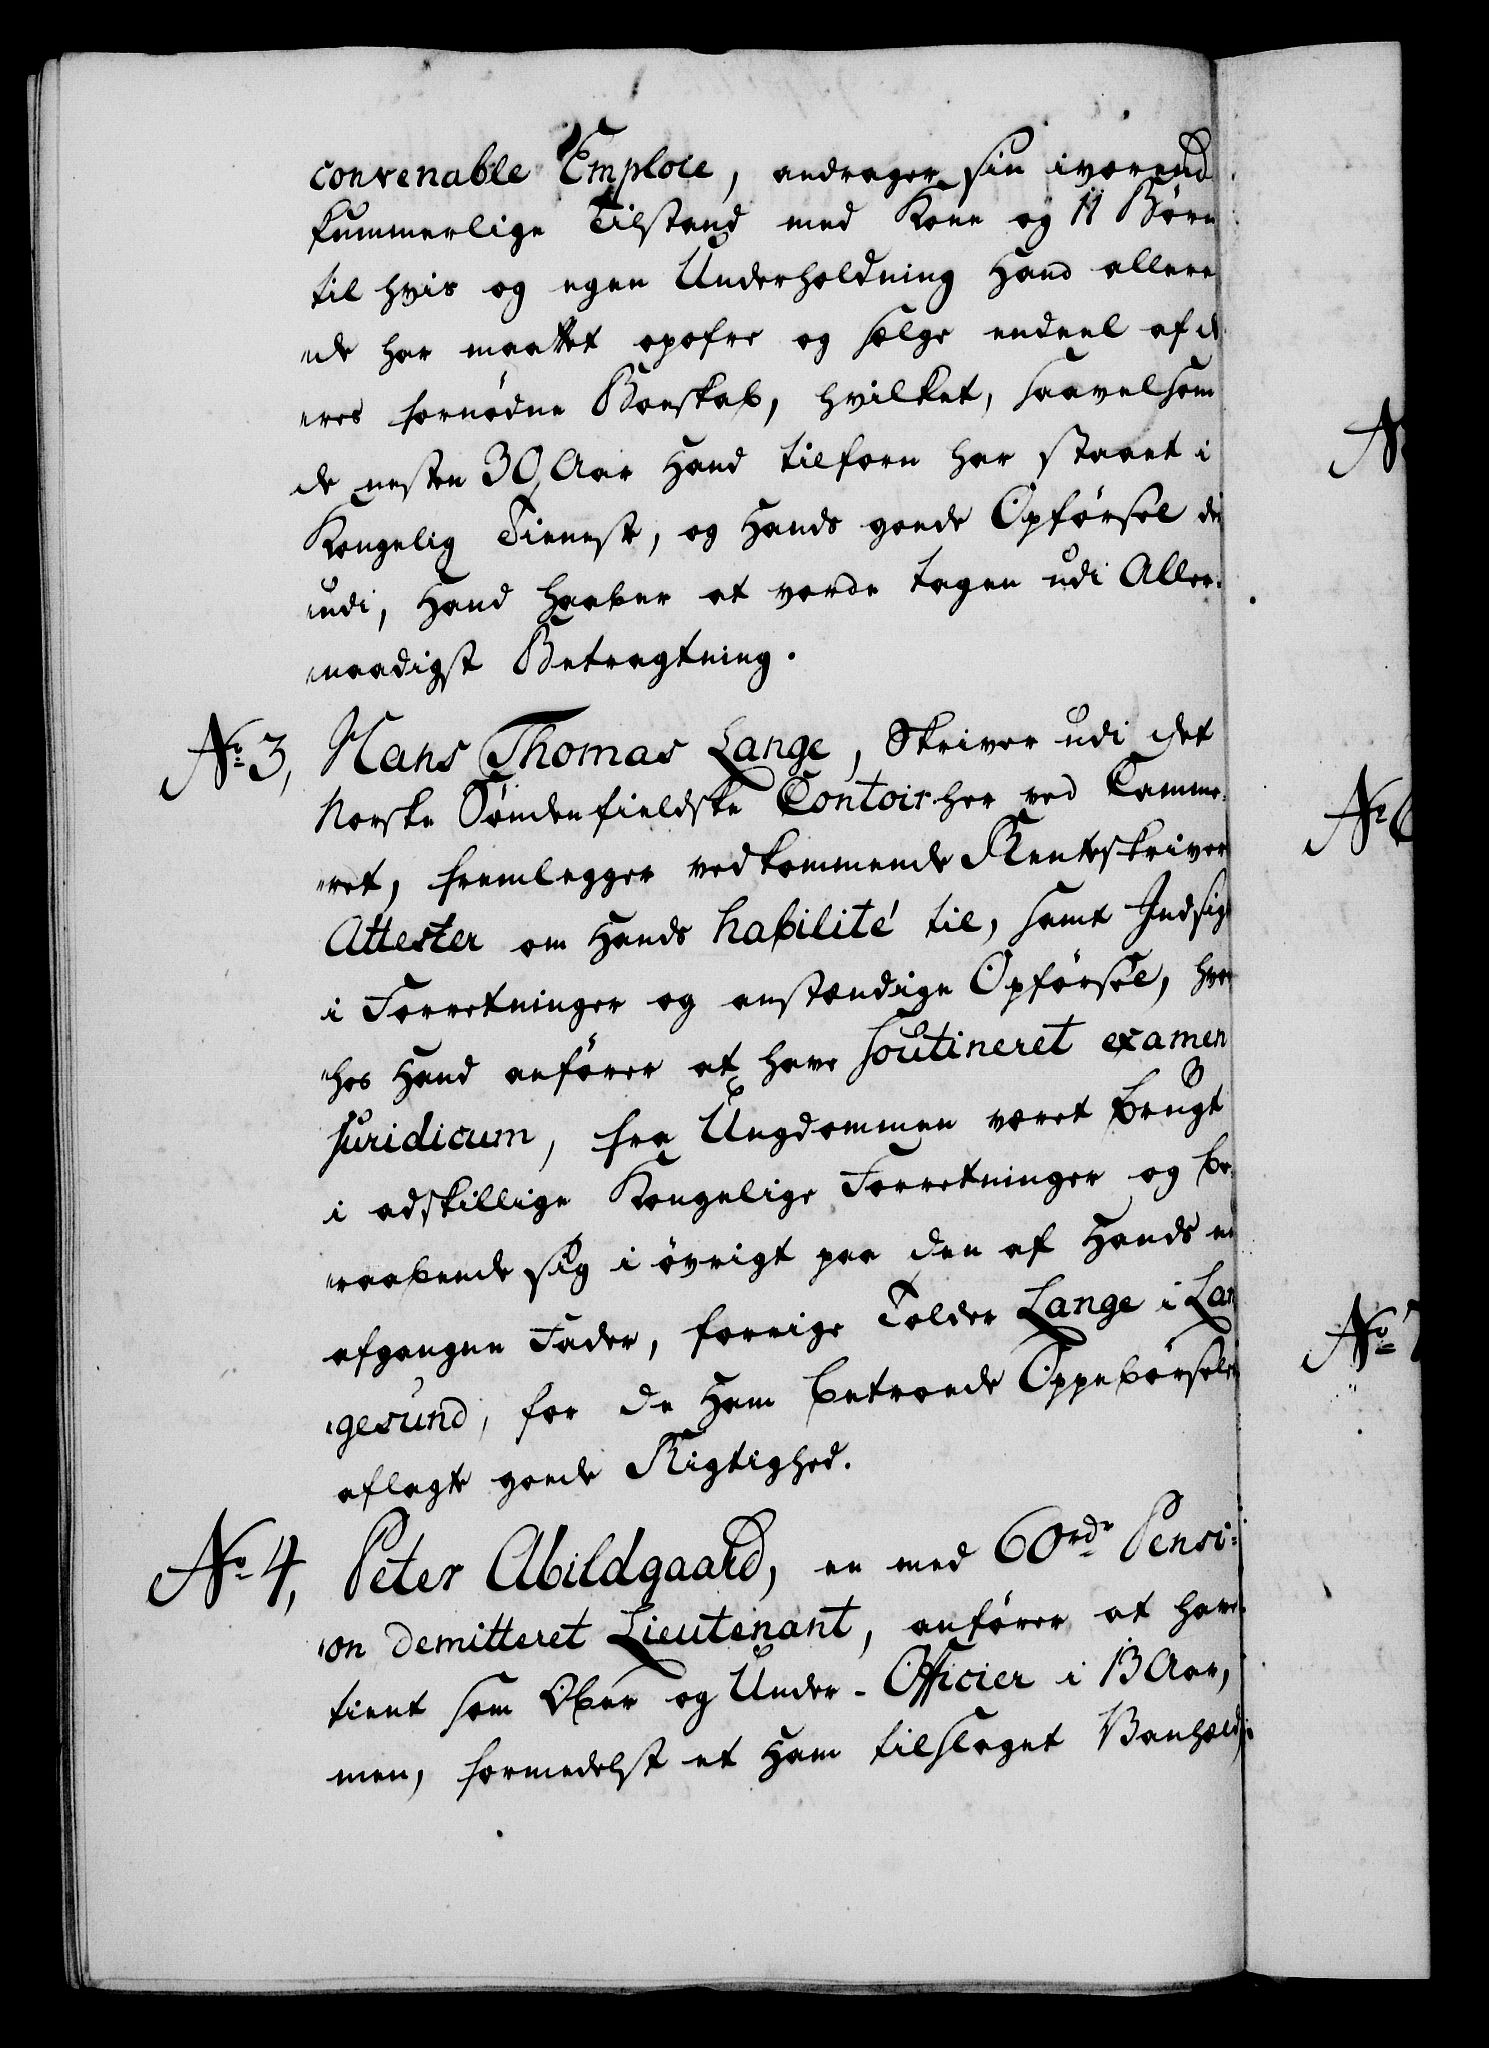 convenable Emploie, andrager sin iværend
kummerlige Tilstand med Kone og 11 Børn
til hvis og egen Underholdning Hand allere
de har maattet opofre og sælge endeel af d
eres fornødne Boeskab, hvilket, saavelsom
de nesten 30 Aar Hand tilforn har staaet i
Kongelig Tieneste, og Hands goede Opførsel der
udi, Hand haaber at vorde tagen udi Aller-
naadigst Betragtning.
No 3, Hans Thomas Lange, Skriver udi det
Norske Søndenfieldske Contoir her ved Camme-
ret, fremlegger vedkommende Renteskriver
Attester om Hands habilité til, samt Indsigt
i Forretninger og anstændige Opførsel, hvor
hos Hand anfører at have soutineret examen
juridicum, fra Ungdommen været brugt
i adskillige Kongelige Forretninger og be-
raabende sig i øvrigt paa den af Hands ved
afgangne Fader, forrige Tolder Lange i Lan
gesund, for de Ham betroede Oppebørseler
aflagte goede Rigtighed.
No 4, Peter Abildgaard, en med 60 rdr Pensi-
on demitteret Lieutenant, anfører at have
tient som Ober og Under-Officier i 13 Aar,
men, formedelst et Ham tilslaget Vanheld
No
No 6
No 7